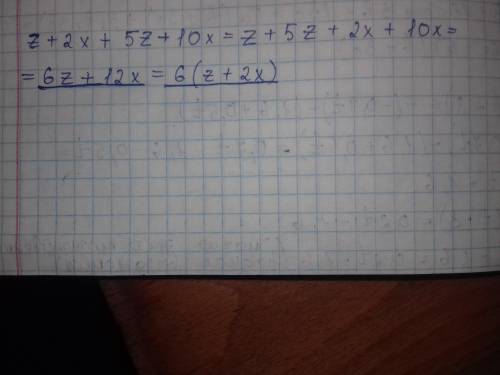 z + 2x + 5z + 10x = z + 5z + 2x + 10x =
= 6z + 12x = 6(z + 2x)